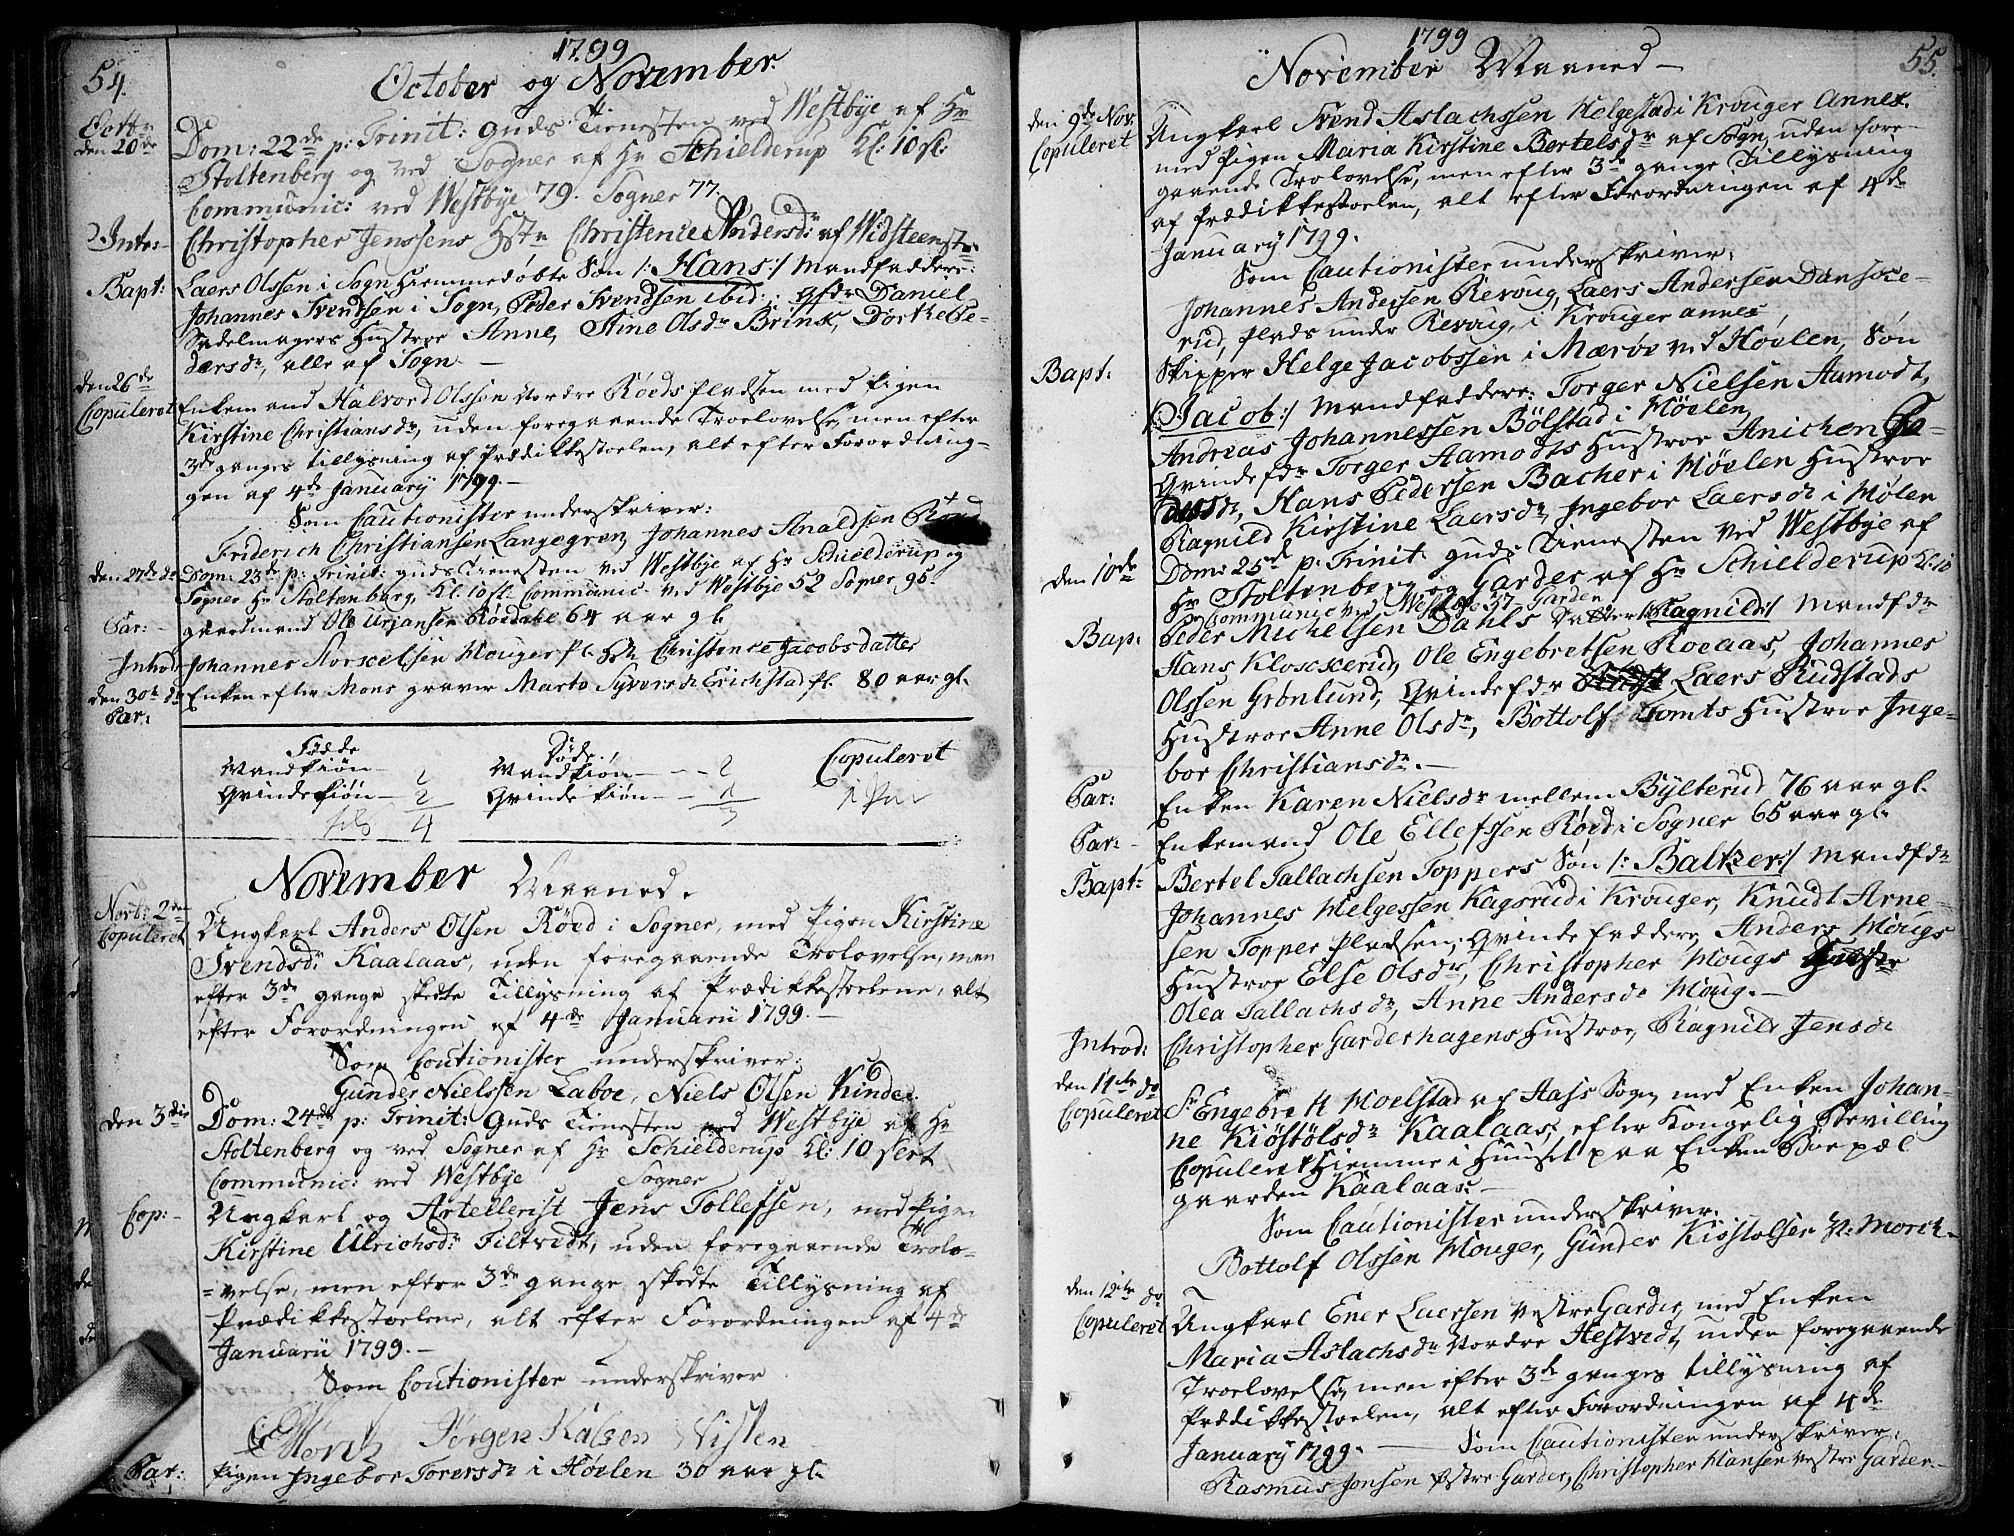 54.
1799
October og November.
Octbr den 20de
Dom: 22de p: Trinit: Guds Tienesten ved Westbye af Hr
Stoltenberg og ved Sogner af Hr Schielderup Kl: 10 sl:
Communic: ved Westbye 79. Sogner 77.
Intr:
Christopher Jenssens Hstr Christence Andersdr af Widsteenst
Bapt:
Laers Olssen i Sogn Hiemmedøbte Søn /: Hans :/ Mandfaddere:
Johannes Svendsen i Sogn, Peder Svendsen ibid:, Qfdr Daniel
Sadelmagers Hustroe Anne, Stine Olsdr Brinx, Dorthe Pe-
dersdr, alle af Sogn. —
den 26de
Copuleret
Enkemand Halvord Olssen Nordre Røeds Pladsen med Pigen
Kirstine Christiansdr, uden foregaaende Troelovelse, men efter
3de ganges Tillysning af Prædikkestoelen, alt efter Forordning-
gen af 4de January 1799. —
Som Cautionister underskriver:
Friderich Christiansen Langegren, Johannes Analdsen Røed
den 27de do
Dom: 23de p: Trinit: Guds Tienesten ved Westbye af Hr Schielderup og
Sogner Hr Stoltenberg, Kl. 10 sl: Communic: ved Westbye 52 Sogner 95.
Par: -
gaardmand Ole Urjansen Røedahle 64 aar gl.
Introd:
Johannes Torkelsen Houger Pl. Hstr Christence Jacobsdatter
den 30te do
Par:
Enken efter Mons graver Marte Syversdr Erichstad pl. 80 aar gl.
Fødde Døde, Copuleret
Mandkiøn — 2 Mandkiøn — 2 1 Par
Qvindekiøn — 2 Qvindekiøn — 1
4 3
November Maaned.
Novb: 2den
Copuleret
Ungkarl Anders Olsen Røed i Sogner, med Pigen Kirstine
Svendsdr Kaalaas, uden foregaaende Trolovelse, men
efter 3de gange skedte Tillysning af Prædikkestoelene, alt
efter Forordningen af 4de Januarii 1799. —
Som Coutionister underskriver:
Gunder Nielssen Laboe, Niels Olsen Kinde.
den 3die
Dom: 24de p: Trinit: Guds Tienesten ved Westbye af Hr
Stoltenberg og ved Sogner af Hr Schielderup Kl: 10 slet
Communic: ved Westbye Sogner
Cop: -
Ungkarl og Artellerist Jens Tollefsen, med Pigen
Kirstine Ulrichsdr Filtvedt, uden foregaaende Trolo-
=velse, men efter 3de gange skedte Tillysning af
Prædikkestoelene, alt efter Forordningen af 4de
Januarii 1799. —
Som Coutionister underskriver
Jørgen Kalsen
Par:
Pigen Ingebor Torersdr i Høelen 30 aar gl.
55.
1799
November Maaned —
den 9de Nov:
Copuleret
Ungkarl Svend Aslachssen Helgestad i Krouger Annex
med Pigen Maria Kirstine Bertelsdr af Sogn, uden fore-
gaaende Trolovelse, men efter 3de gange Tillysning
af Prædikkestoelen, alt efter Forordningen af 4de
January 1799.
Som Cautionister underskriver:
Johannes Andersen Revoug, Laers Andersen Danske-
rud, plads under Revoug, i Krouger annex
Bapt:
Skipper Helge Jacobssen i Mærøe ved Høelen, Søn
/: Jacob :/ Mandfaddere: Torger Nielsen Aamodt,
Andreas Johannessen Bølstad i Høelen,
Qvindefdr Torger Aamodts Hustroe Anichen
Hans Pedersen Bacher i Høelen Hustroe
Ragnild Kirstine Laersdr, Ingebor Laersdr i Hølen
den 10de
Dom: 25de p: Trinit: Guds Tienesten ved Westbye af
Hr Stoltenberg og Garder af Hr Schielderup Kl: 10
Communic ved Westbye 37 Garder
Bap:
Peder Michelsen Dahls Datter /: Ragnild :/ Mandfdr
Hans Kloxxerud, Ole Engebretsen Roeaas, Johannes
Olssen Grønlund, Qvindefdr Laers Rudstads
Hustroe Anne Olsdr, Bottolf Tomts Hustroe Inge-
bor Christiansdr. —
Par:
Enken Karen Nielsdr mellem Bylterud 76 aar gl.
Par: -
Enkemand Ole Ellefssen Røed i Sogner 65 aar gl.
Bapt:
Bertel Tallachsen Toppers Søn /: Baltzer :/ Mandfdr
Johannes Helgessen Kagsrud i Krouger, Knudt Arne-
sen Topper Pladsen, Qvindefaddere Anders Hougs
Hustroe Else Olsdr, Christopher Hougs
Olea Tallachsdr, Anne Andersdr Houg. —
Introd:
Christopher Garderhagens Hustroe, Ragnild Jensdr
den 11te do
Copuleret
Sr Engebret Moelstad af Aass Sogn, med Enken Johan-
ne Kiøstølsdr Kaalaas, efter Kongelig Bevilling
Copuleret Hiemme i Huuset paa Enken Boepæl
gaarden Kaalaas. —
Som Cautionister underskriver.
Bottolf Olssen Houger, Gunder Kiøstolsen N: Morck.
den 12te do
Copuleret
Ungkarl Ener Laersen Vestre Garder, med Enken
Maria Aslachsdr Nordre Hestvedt, uden foregaaende
Troelovelse, men efter 3de ganges tillysning af
Prædikkestoelen, alt efter Forordningen af 4de
January 1799. — Som Cautionister underskriver:
Rasmus Jonsen Østre Garder, Christopher Hansen Vestre Garder.